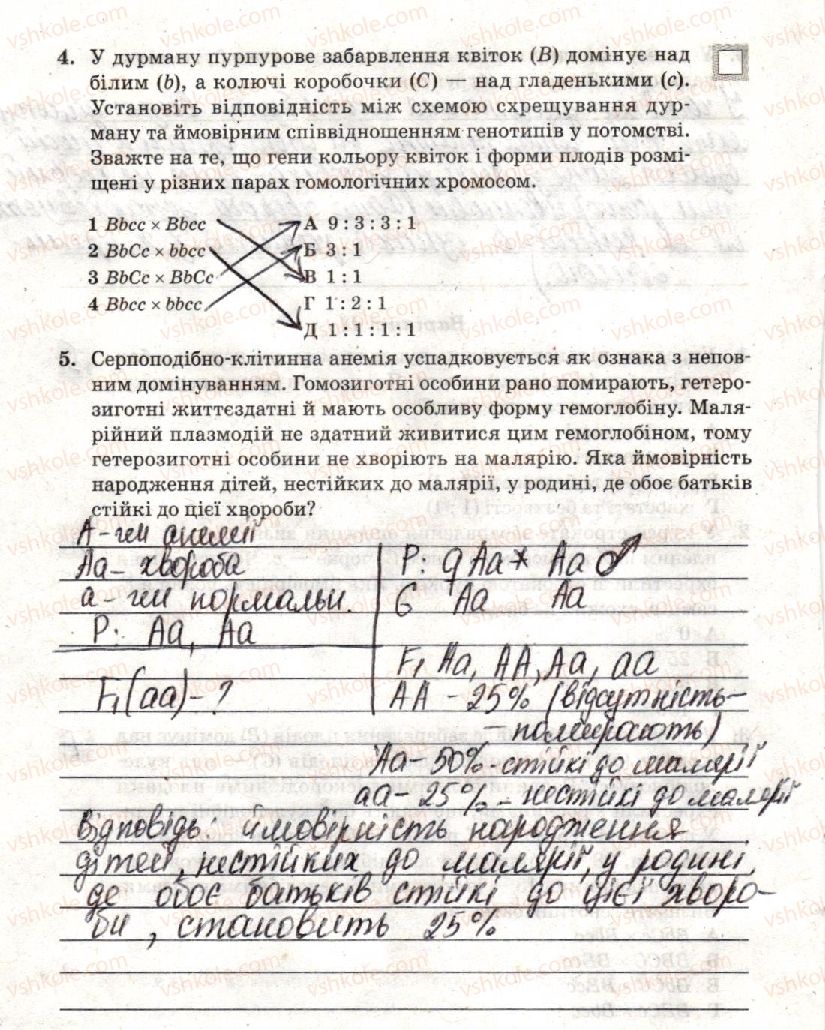 4. У дурману пурпурове забарвлення квіток (B) домінує над
білим (b), а колючі коробочки (C) — над гладенькими (c).
Установіть відповідність між схемою схрещування дур-
ману та ймовірним співвідношенням генотипів у потомстві.
Зважте на те, що гени кольору квіток і форми плодів розмі-
щені у різних парах гомологічних хромосом.
1 Bbcc × Bbcc А 9 : 3 : 3 : 1
2 BbCc × bbcc Б 3 : 1
3 BbCc × BbCc В 1 : 1
4 Bbcc × bbcc Г 1 : 2 : 1
Д 1 : 1 : 1 : 1
5. Серпоподібно-клітинна анемія успадковується як ознака з непов-
ним домінуванням. Гомозиготні особини рано помирають, гетеро-
зиготні життєздатні й мають особливу форму гемоглобіну. Маля-
рійний плазмодій не здатний живитися цим гемоглобіном, тому
гетерозиготні особини не хворіють на малярію. Яка ймовірність
народження дітей, нестійких до малярії, у родині, де обоє батьків
стійкі до цієї хвороби?
А - ген анемії
Аа - хвороба
а - ген нормальн.
Р: Аа, Аа
F₁(аа) - ?
Р: ♀ Аа × Аа ♂
G Аа Аа
F₁ Аа, АА, Аа, аа
АА - 25% (відсутність-
- помирають)
Аа - 50% - стійкі до малярії
аа - 25% - нестійкі до малярії
Відповідь: ймовірність народження
дітей, нестійких до малярії, у родині,
де обоє батьків стійкі до цієї хворо-
би, становить 25%
vshkole.com